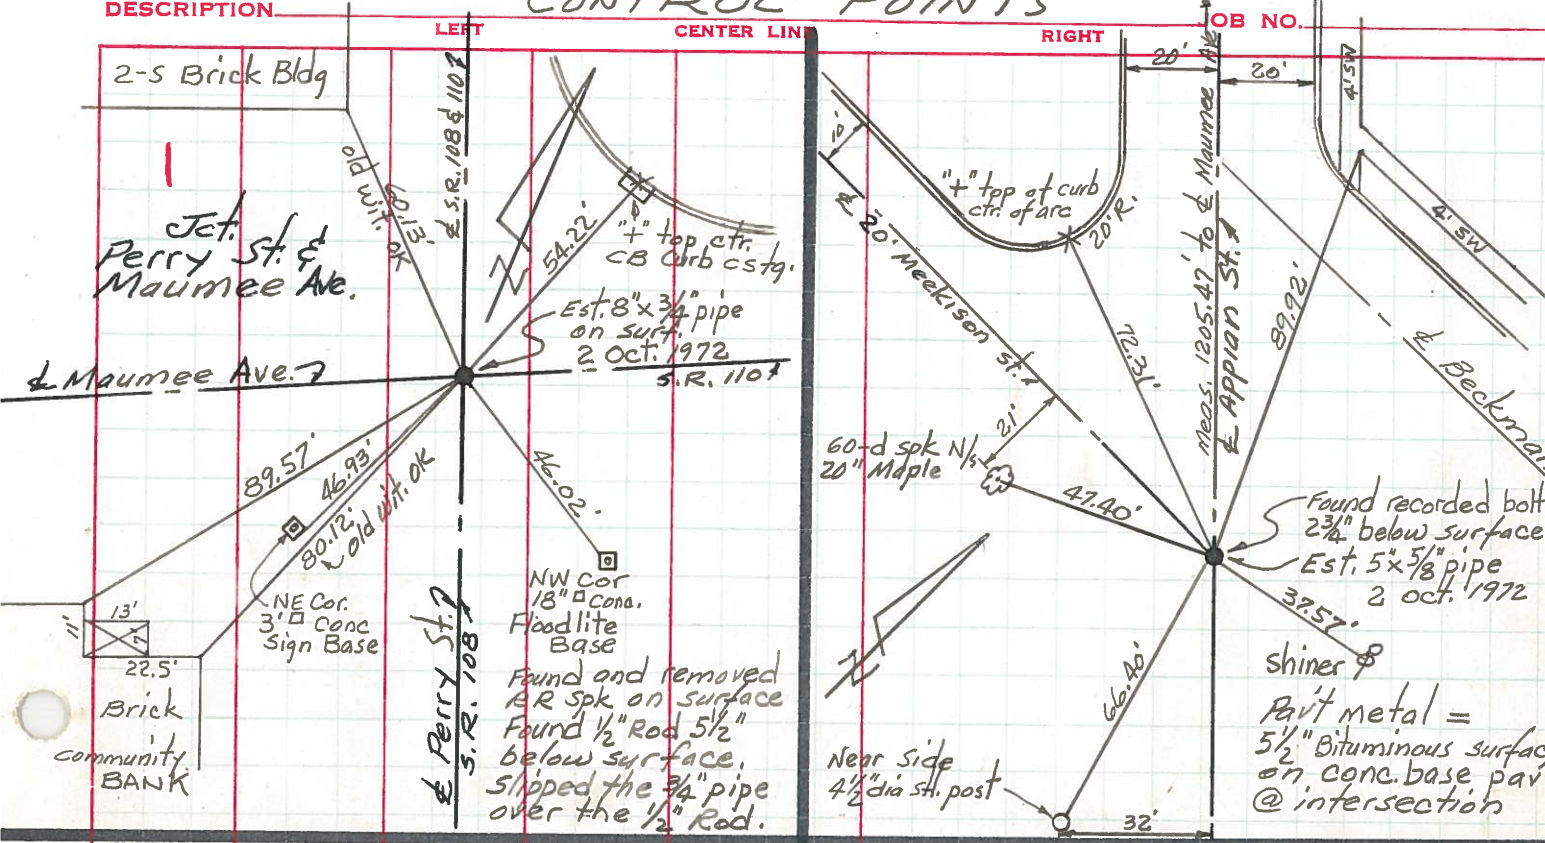 CONTROL POINTS
DESCRIPTION
LEFT
CENTER LIN
RIGHT
OB NO.
2-S Brick Bldg
1
Jct.
Perry St. &
Maumee Ave.
old wit. OK
60.13'
℄ S.R. 108 & 110
54.22'
"+" top ctr.
CB Curb cstg.
Est. 8" x 3/4" pipe
on surf.
2 Oct. 1972
℄ Maumee Ave.
S.R. 110
89.57'
46.93'
80.12'
old wit. OK
46.02'
NE Cor.
3' □ Conc
Sign Base
NW Cor
18" □ Conc.
Floodlite
Base
11'
13'
7'
22.5'
Brick
Community
BANK
℄ Perry St.
S.R. 108
Found and removed
RR Spk on surface
Found 1/2" Rod 5 1/2"
below surface.
Slipped the 3/4" pipe
over the 1/2" Rod.
10'
℄ 20' Meekison St.
"+" top of curb
ctr. of arc
20' R.
20'
20'
4' SW
4' SW
Meas. 1205.42' to ℄ Maumee Ave
℄ Appian St.
72.31'
89.92'
℄ Beckman
21'
60-d spk N/s
20" Maple
47.40'
Found recorded bolt
2 3/4" below surface
Est. 5" x 5/8" pipe
2 Oct. 1972
37.57'
Shiner
66.40'
Near Side
4 1/2" dia stl. post
32'
Pav't metal =
5 1/2" Bituminous surfac
on conc. base pav
@ intersection